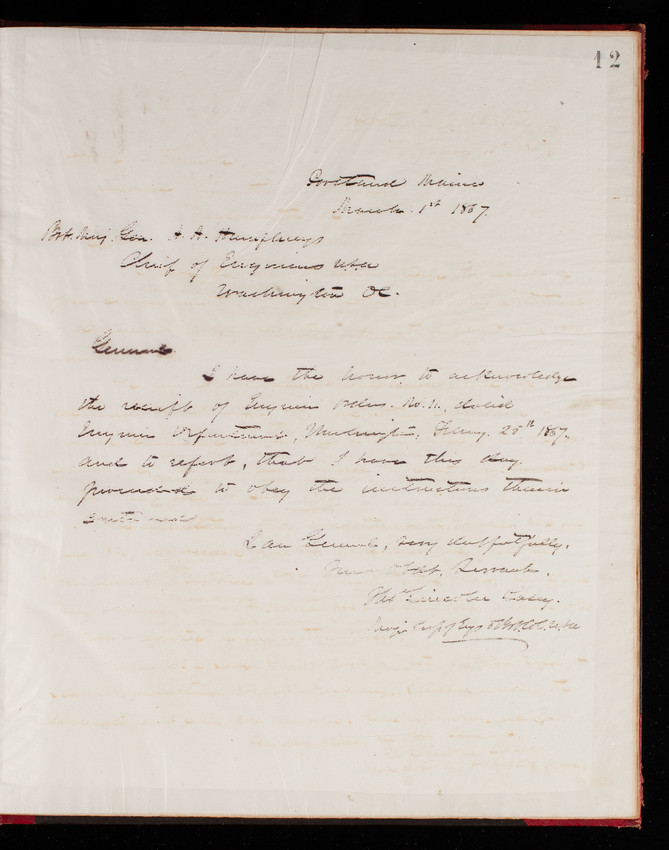 12
Portland Maine
March. 1st 1867.
Bvt. Maj. Gen. A. A. Humphreys
Chief of Engineers U.S.A
Washington D.C.
General.
I have the honor to acknowledge
the receipt of Engineer Orders. No. 11, dated
Engineer Department, Washington, Feby. 25th 1867.
and to report, that I have this day
proceeded to obey the instructions therein
contained
I am General, very respectfully,
Your Obdt. Servant.
Thos. Lincoln Casey.
Maj. Corps of Engs &